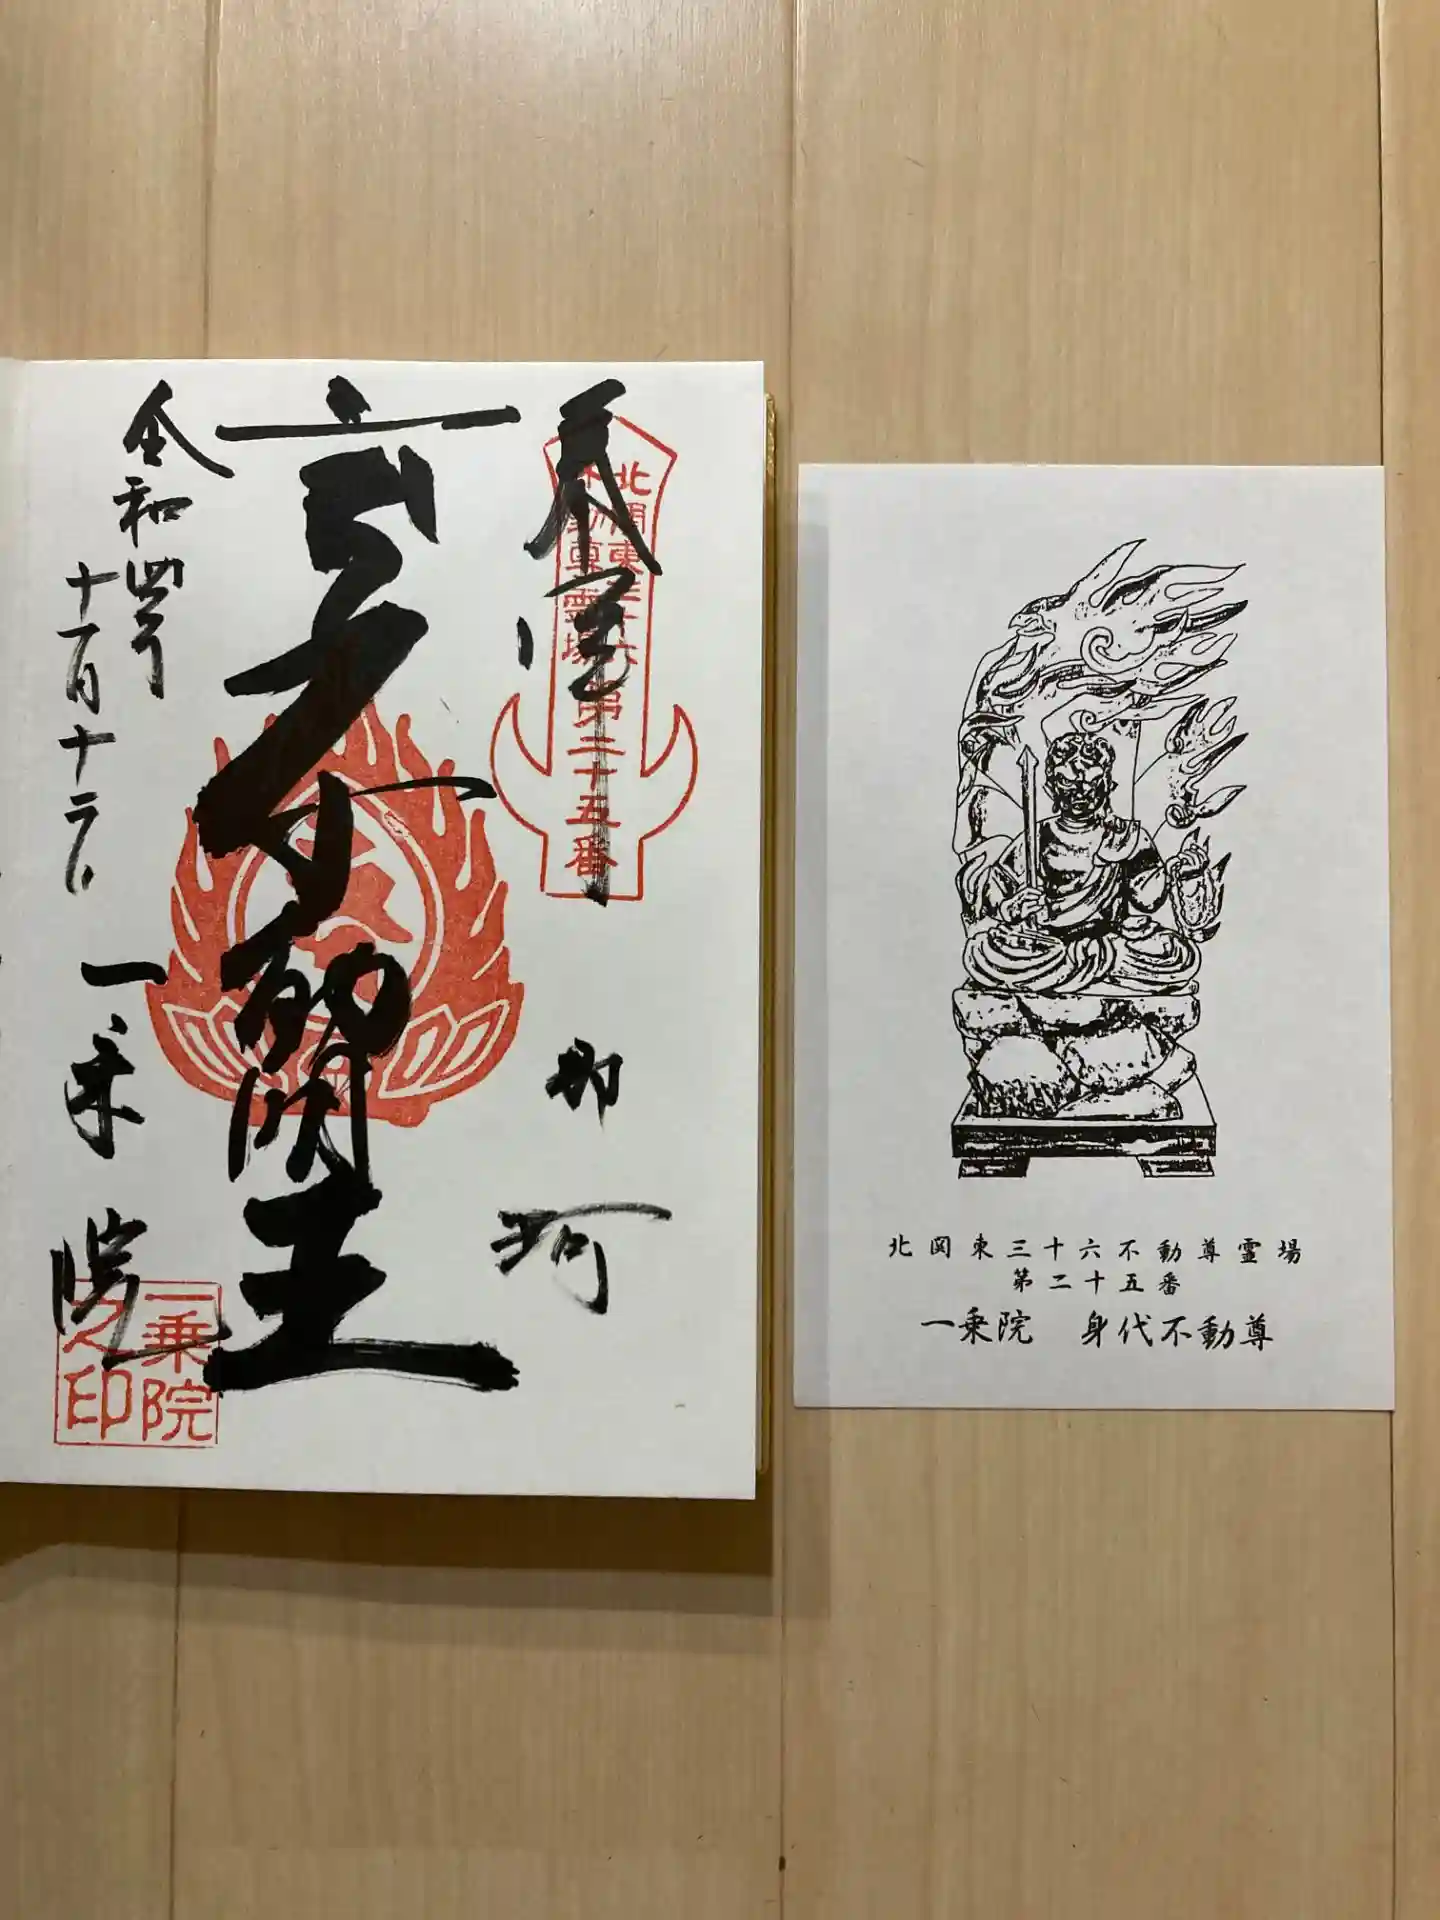 那珂
北関東三十六
不動尊霊場
第二十五番
不動明王
令和四年
十一月十
一乗院
一乗院
之印
北関東三十六不動尊霊場
第二十五番
一乗院 身代不動尊